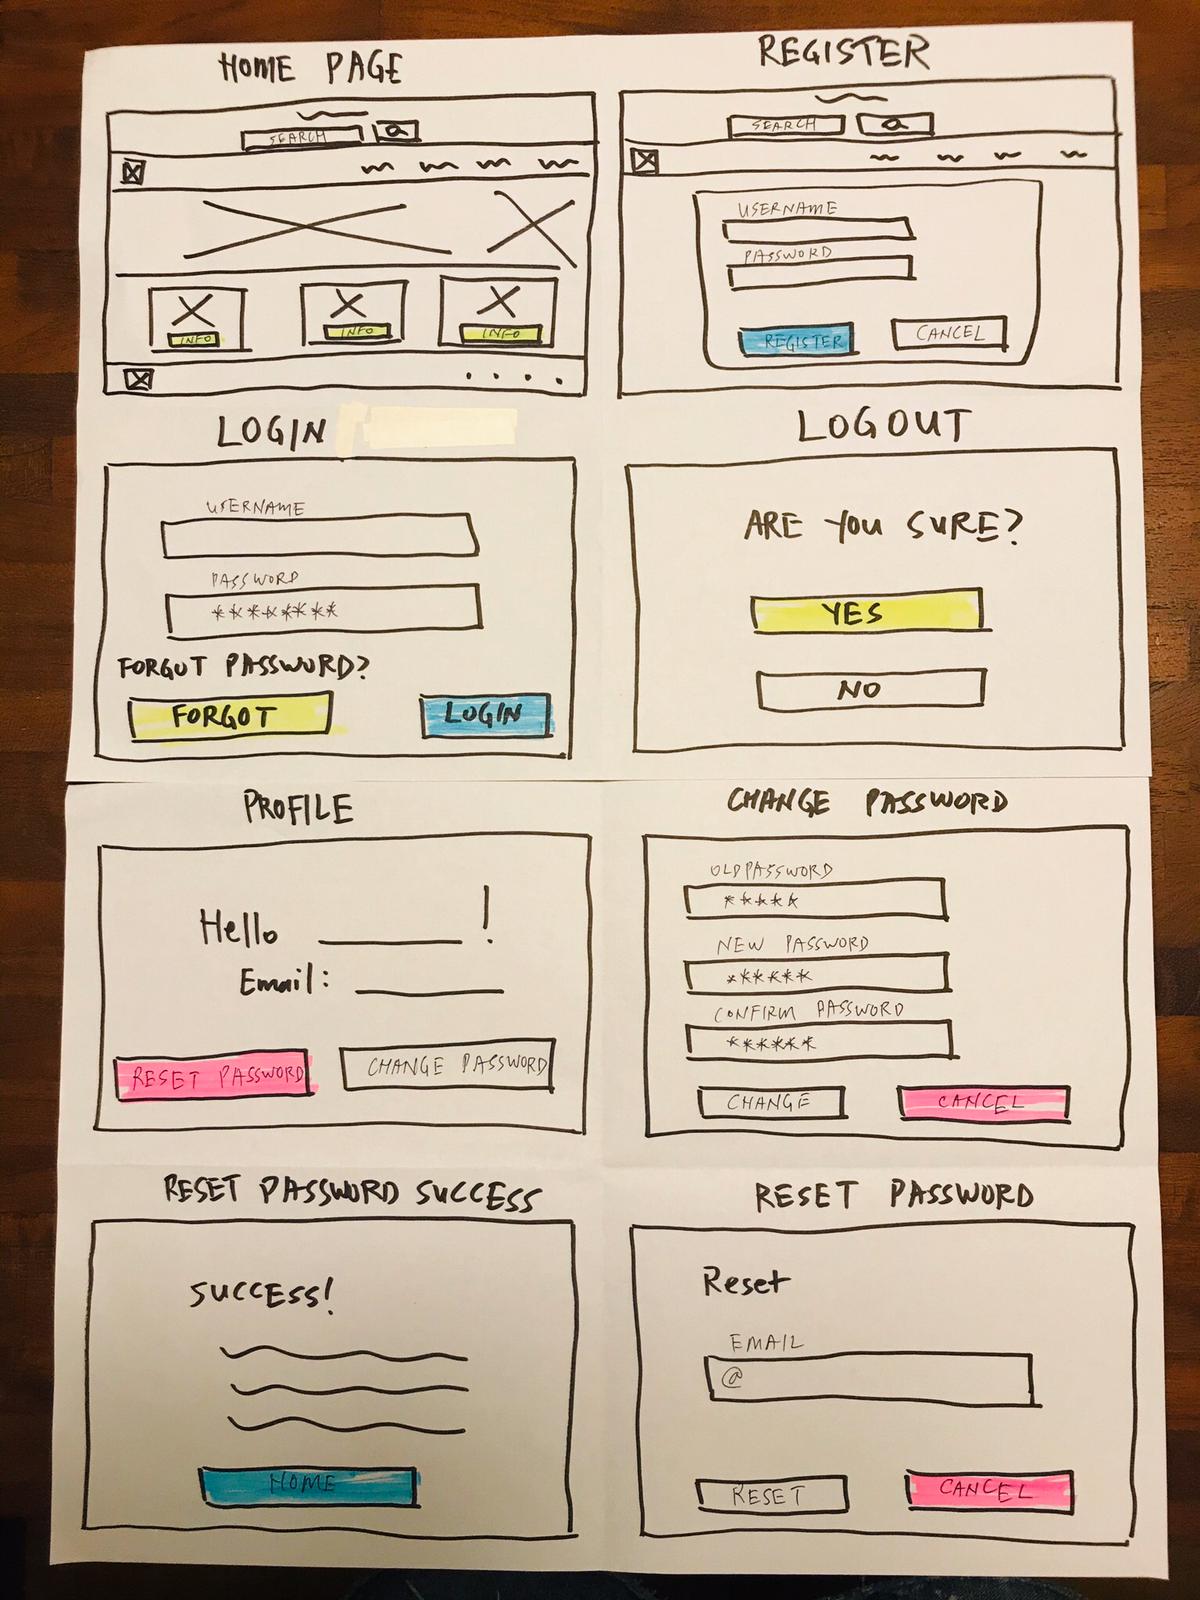 HOME PAGE
SEARCH
INFO
INFO
INFO
REGISTER
SEARCH
USERNAME
PASSWORD
REGISTER
CANCEL
LOGIN
USERNAME
PASSWORD
********
FORGOT PASSWORD?
FORGOT
LOGIN
LOGOUT
ARE YOU SURE?
YES
NO
PROFILE
Hello ________ !
Email: ________
RESET PASSWORD
CHANGE PASSWORD
CHANGE PASSWORD
OLD PASSWORD
*****
NEW PASSWORD
******
CONFIRM PASSWORD
******
CHANGE
CANCEL
RESET PASSWORD SUCCESS
SUCCESS!
HOME
RESET PASSWORD
Reset
EMAIL
@
RESET
CANCEL